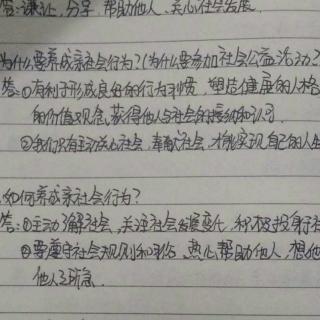 答:谦让,分享,帮助他人,关心社会发展.
为什么要养成亲社会行为?(为什么要参加社会公益活动?
答:①有利于形成良好的行为习惯,塑造健康的人格
的价值观念,获得他人与社会的接纳和认可.
②我们只有主动关心社会,奉献社会,才能实现自己的人生
如何养成亲社会行为?
答:①主动了解社会,关注社会发展变化,积极投身社
②要遵守社会规则和习俗,热心帮助他人,想他
他人之所急.